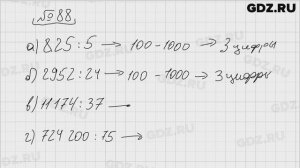 GDZ.RU
№88
а) 825 : 5 → 100 - 1000 → 3 цифры
б) 2952 : 24 → 100 - 1000 → 3 цифры
в) 11174 : 37 →
г) 724 200 : 75 →
GDZ.RU